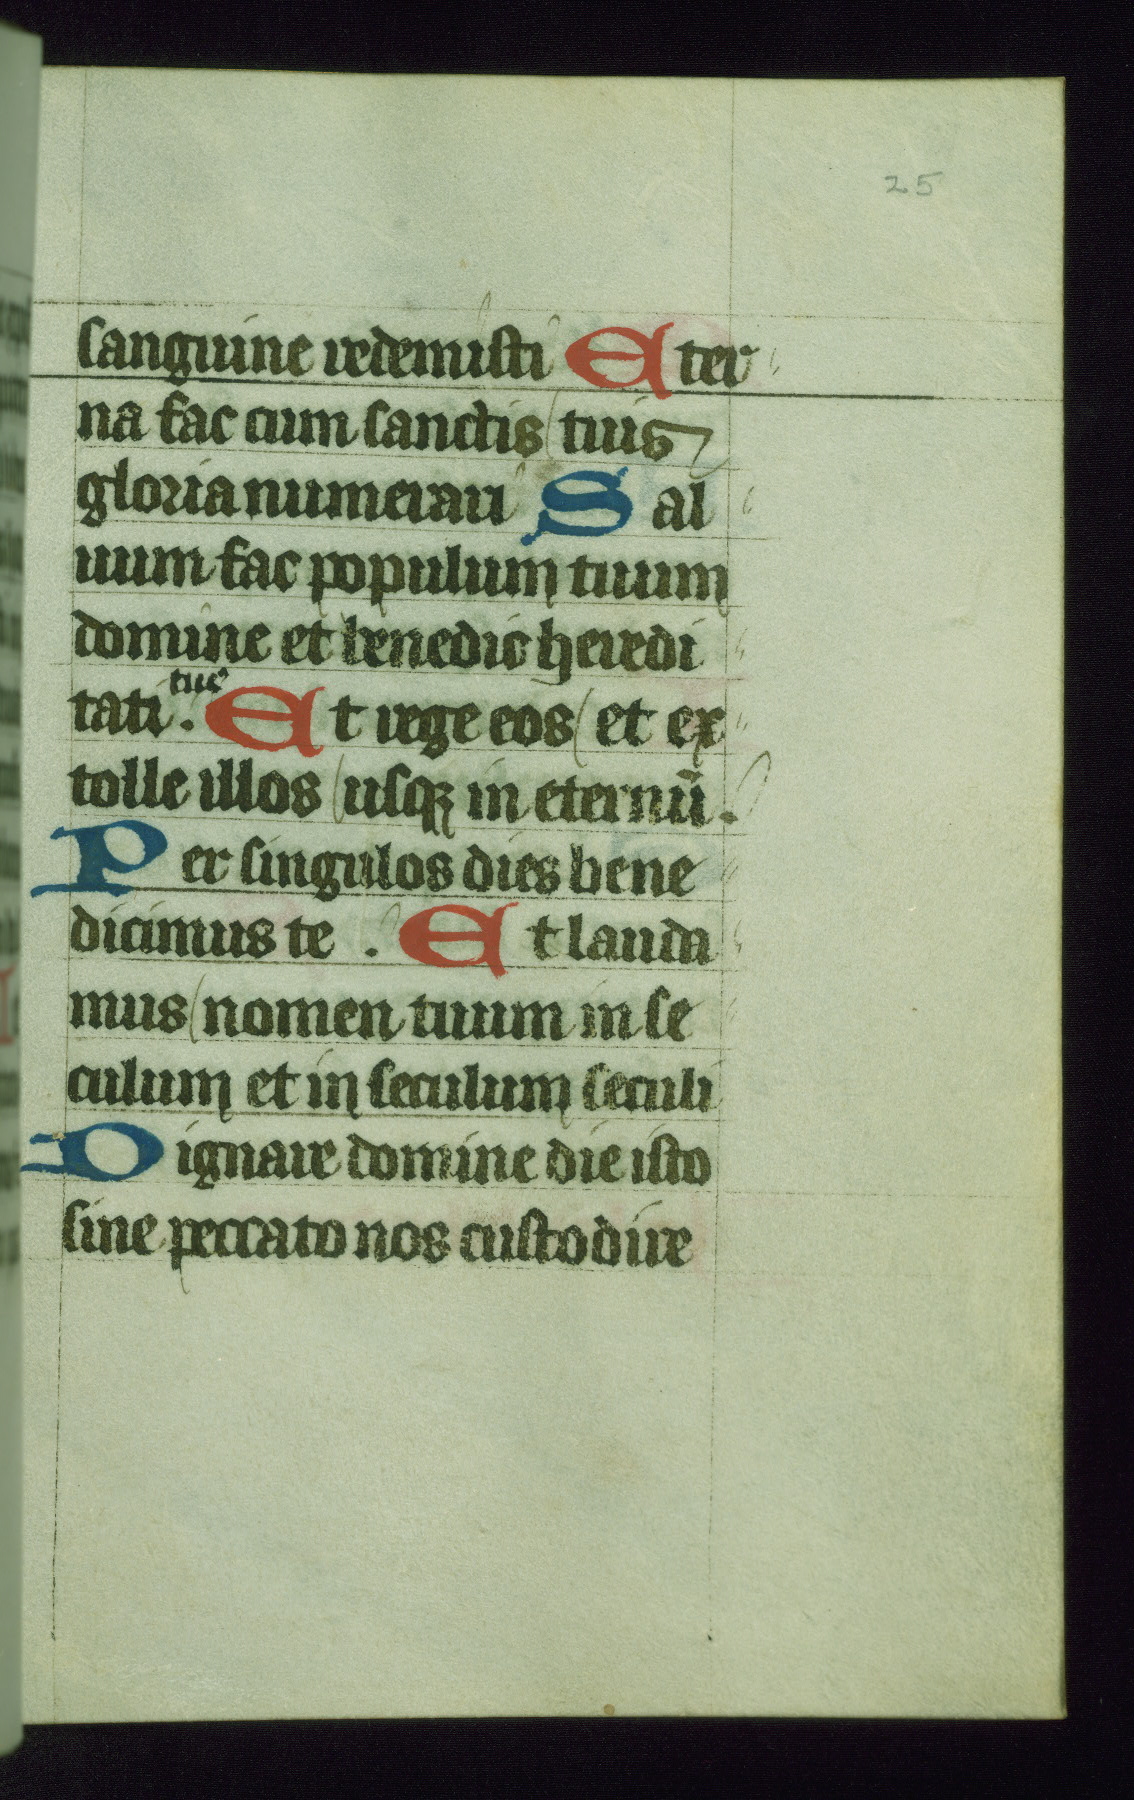 25
sanguine redemisti Eter
na fac cum sanctis tuis
gloria numerari Sal
uum fac populum tuum
domine et benedic heredi
tati tue. Et rege eos et ex
tolle illos usqꝫ in eternū.
Per singulos dies bene
dicimus te. Et lauda
mus nomen tuum in se
culum et in seculum seculi
Dignare domine die isto
sine peccato nos custodire